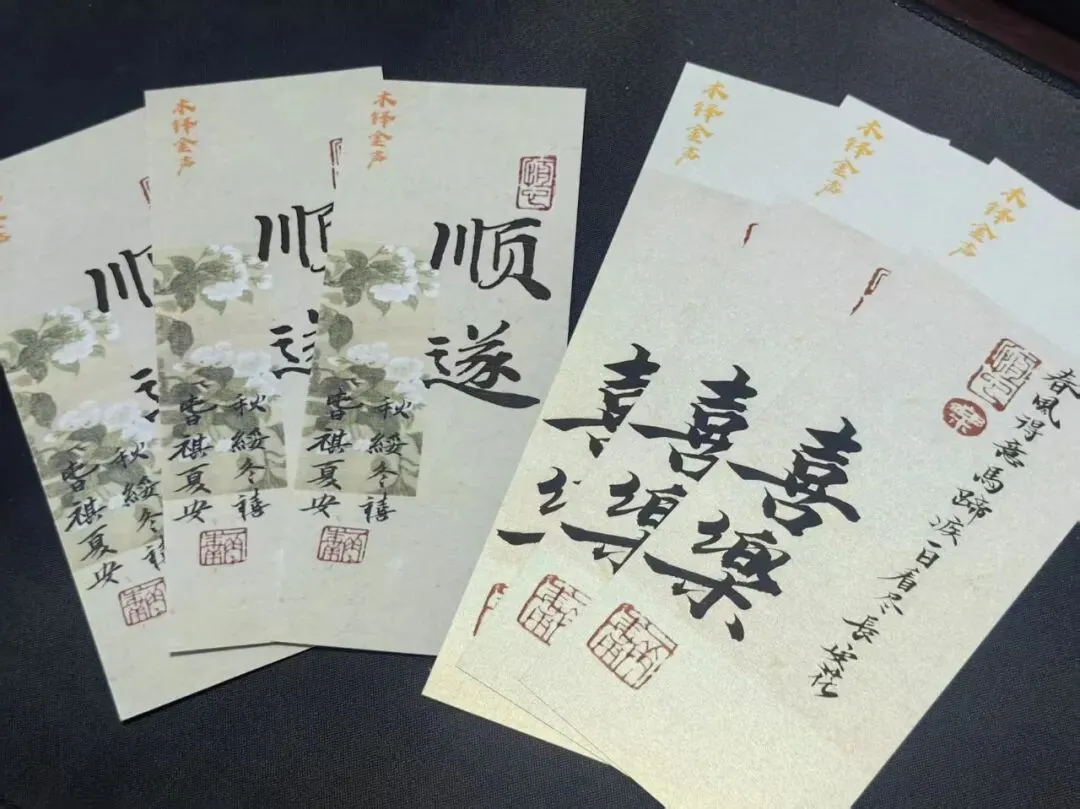 木铎金声
顺
旾祺夏安
秋綏冬禧
木铎金声
顺
旾祺夏安
秋綏冬禧
木铎金声
顺遂
旾祺夏安
秋綏冬禧
木铎金声
喜
木铎金声
喜樂
木铎金声
春風得意馬蹄疾一日看尽長安花
樂
喜樂